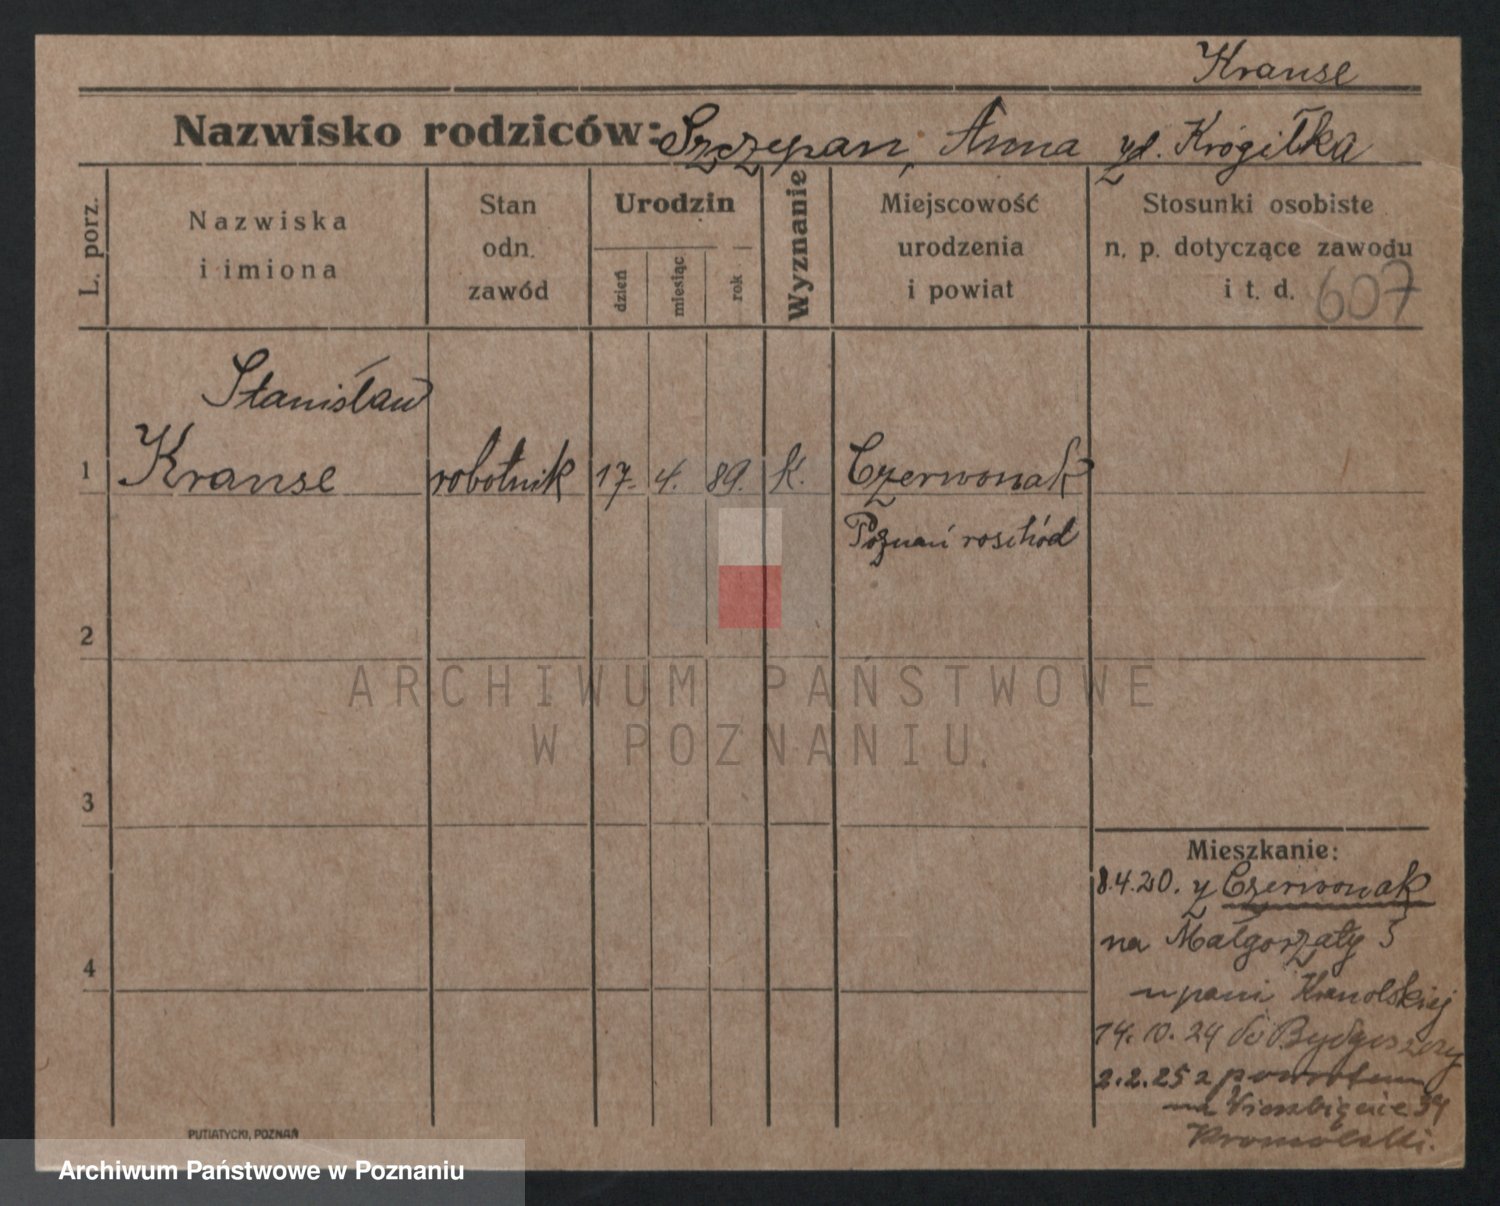 Krause
Nazwisko rodziców: Szczepan, Anna zd. Krógiłka
L. porz.
Nazwiska
i imiona
Stan
odn.
zawód
Urodzin
dzień
miesiąc
rok
Wyznanie
Miejscowość
urodzenia
i powiat
Stosunki osobiste
n. p. dotyczące zawodu
i t. d. 607
Stanisław
1 Krause robotnik 17. 4. 89. k. Czerwonak
Poznań wschód
2
ARCHIWUM PAŃSTWOWE
W POZNANIU
3
Mieszkanie:
8.4.20. z Czerwonak
na Małgorzaty 5
4
u pani
14.10.24 do Bydgoszczy
2.2.25 z powrotem
na
PUTIATYCKI, POZNAŃ
Archiwum Państwowe w Poznaniu